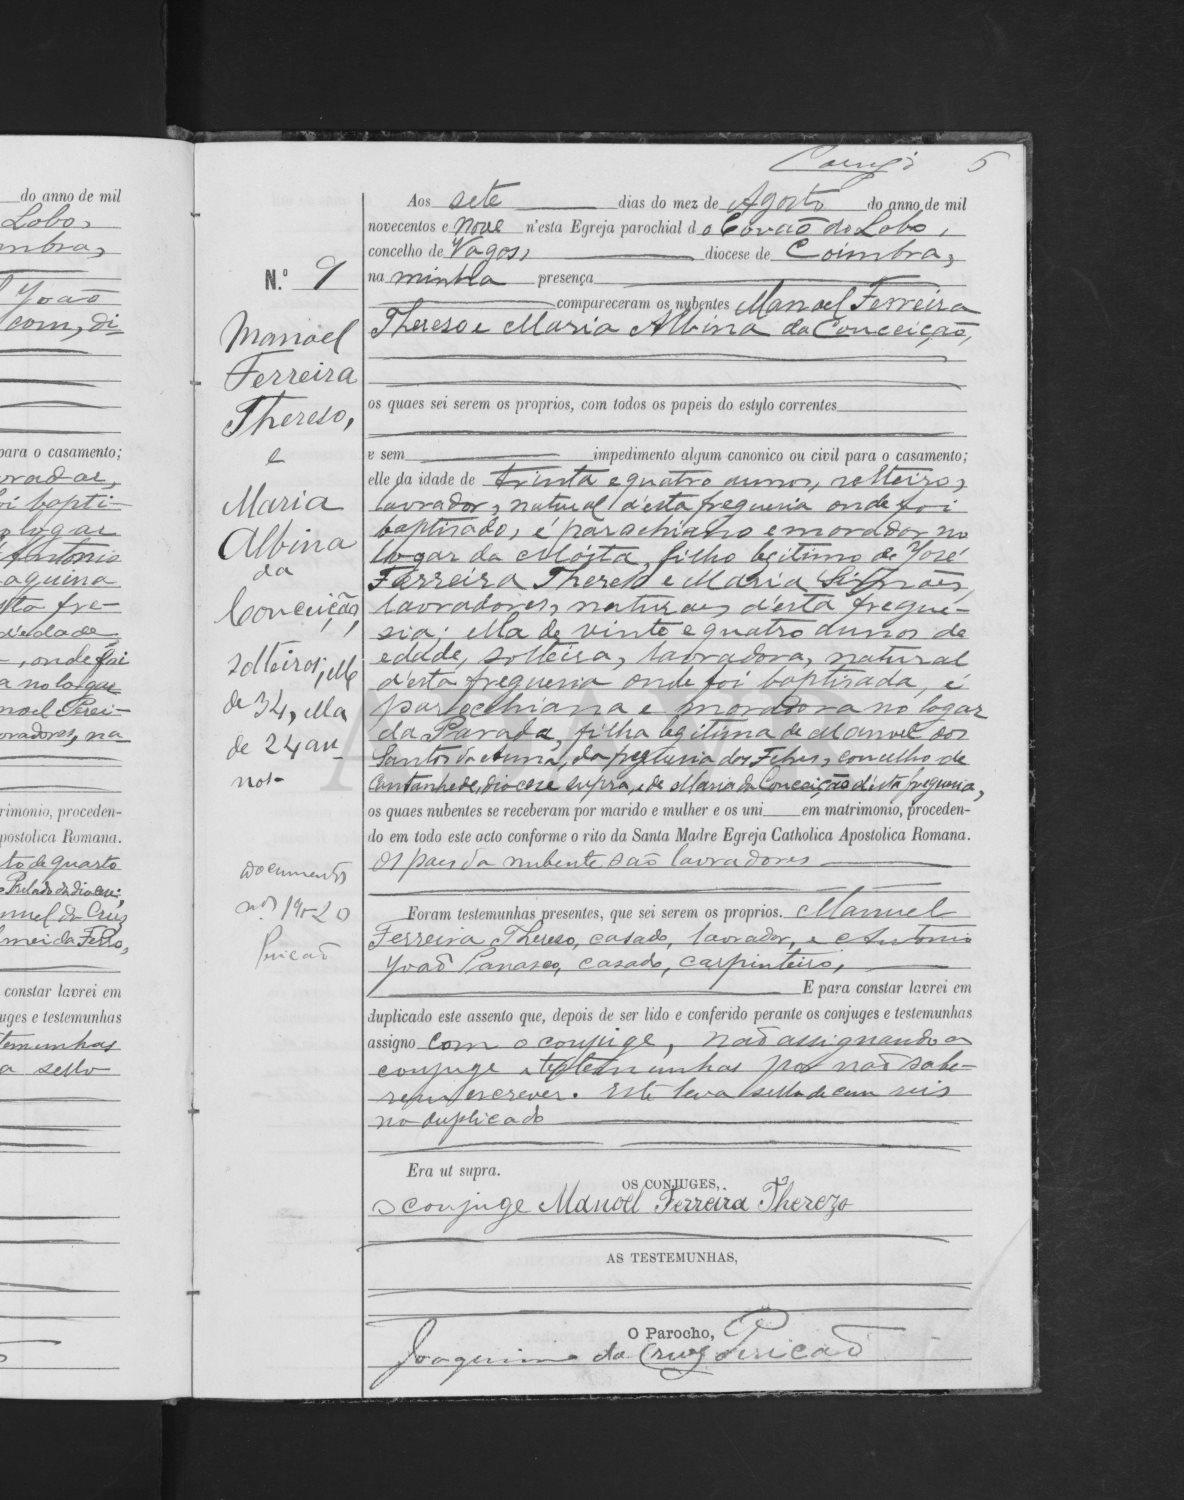 do anno de mil
Lobo,
mbra,
João
com, di
para o casamento;
foi bapti-
logar
Antonio
sta fre-
d'edade
-, onde foi
a no logar
noel Perei-
vradores, na
rimonio, proceden-
postolica Romana.
to de quarto
Prelado da diocese;
nuel da Cruz
constar lavrei em
uges e testemunhas
temunhas
a sello
5
Aos sete dias do mez de Agosto do anno de mil
novecentos e nove n'esta Egreja parochial do Covão do Lobo,
concelho de Vagos, diocese de Coimbra,
na minha presença
compareceram os nubentes Manoel Ferreira
Thereso e Maria Albina da Conceição,
os quaes sei serem os proprios, com todos os papeis do estylo correntes
e sem impedimento algum canonico ou civil para o casamento;
elle da idade de trinta e quatro annos, solteiro,
lavrador, natural d'esta freguesia onde foi
baptisado, é parochiano e morador no
logar da Moita, filho legitimo de José
Ferreira Thereso e Maria Simões,
lavradores, naturaes d'esta fregue-
sia; ella de vinte e quatro annos de
edade, solteira, lavradora, natural
d'esta freguesia onde foi baptisada, é
parochiana e moradora no logar
da Parada, filha legitima de Manuel dos
Santos da Anna, da freguesia dos Febres, concelho de
Cantanhede, diocese supra, e de Maria da Conceição d'esta freguesia,
os quaes nubentes se receberam por marido e mulher e os uni em matrimonio, proceden-
do em todo este acto conforme o rito da Santa Madre Egreja Catholica Apostolica Romana.
Os paes da nubente são lavradores
Foram testemunhas presentes, que sei serem os proprios. Manuel
Ferreira Thereso, casado, lavrador, e Antonio
João Panasco, casado, carpinteiro,
E para constar lavrei em
duplicado este assento que, depois de ser lido e conferido perante os conjuges e testemunhas
assigno com o conjuge, não assignando a
conjuge e testemunhas por não sabe-
rem escrever. Este leva sello de cem reis
no duplicado
Era ut supra.
OS CONJUGES,
O conjuge Manoel Ferreira Therezo
AS TESTEMUNHAS,
O Parocho,
Joaquim da Cruz Pericão
N.º 9
Manoel
Ferreira
Thereso,
e
Maria
Albina
da
Conceição,
solteiros; elle
de 34, ella
de 24 an-
nos-
Documentos
n.os 19 e 20
Pericão